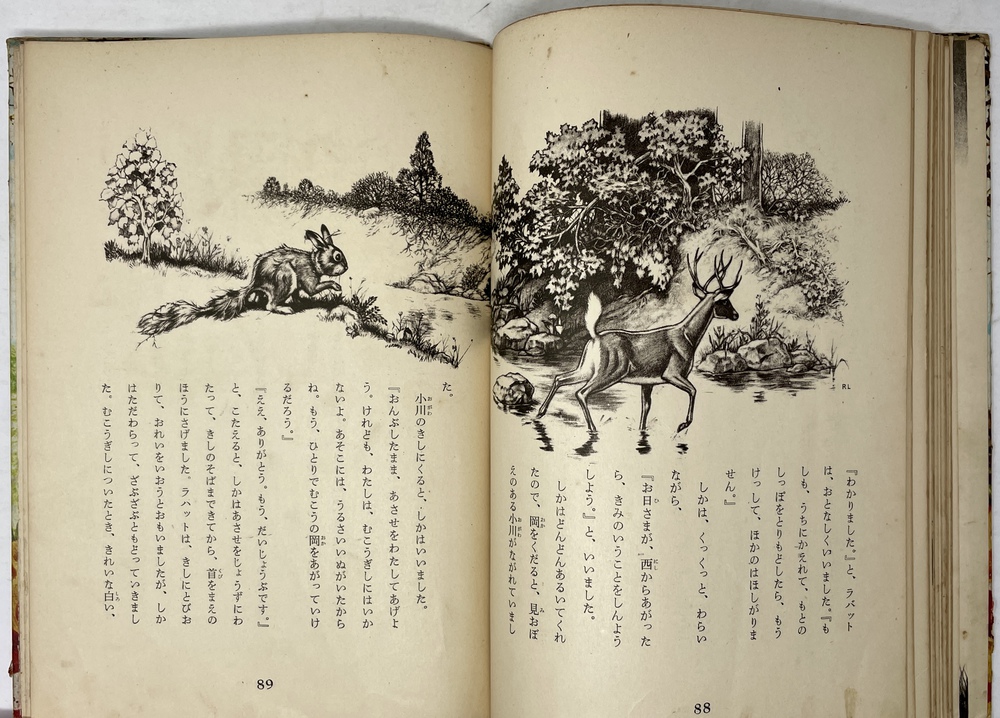 『わかりました。』と、ラバット
は、おとなしくいいました。『も
しも、うちにかえれて、もとの
しっぽをとりもどしたら、もう
けっして、ほかのはほしがりま
せん。』
しかは、くっくっと、わらい
ながら、
『お日さまが、西からあがった
ら、きみのいうことをしんよう
しよう。』と、いいました。
しかはどんどんあるいてくれ
たので、岡をくだると、見おぼ
えのある小川がながれていまし
RL
88
た。
小川のきしにくると、しかはいいました。
『おんぶしたまま、あさせをわたしてあげよ
う。けれども、わたしは、むこうぎしにはいか
ないよ。あそこには、うるさいいぬがいたから
ね。もう、ひとりでむこうの岡をあがっていけ
るだろう。』
『ええ、ありがとう。もう、だいじょうぶです。』
と、こたえると、しかはあさせをじょうずにわ
たって、きしのそばまできてから、首をまえの
ほうにさげました。ラハットは、きしにとびお
りて、おれいをいおうとおもいましたが、しか
はただわらって、ざぶざぶともどっていきまし
た。むこうぎしについたとき、きれいな白い、
89